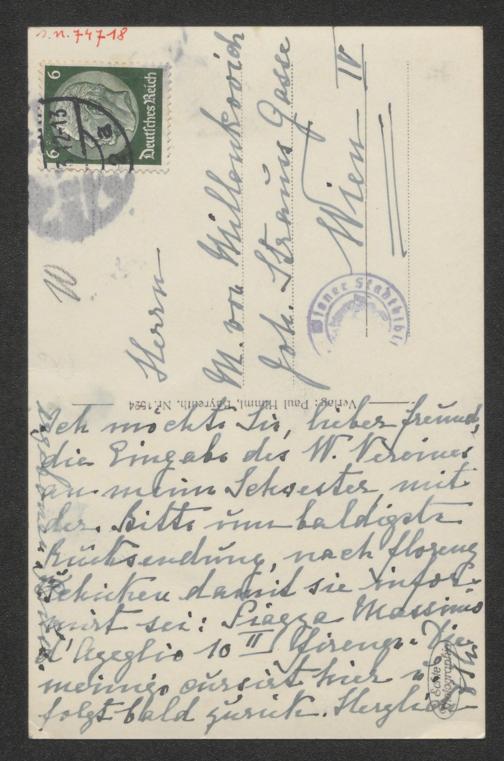 s.n. 74718
6
6
Deutsches Reich
Herrn
M. von Millenkovich
Joh. Strauss Gasse
Wien IV
Wiener Stadtbibl
Verlag: Paul Himml, Bayreuth. Nr. 1524
Ich möchte Sie, lieber Freund,
die Eingabe des W. Vereines
an meine Schwester mit
der Bitte um baldigste
Rücksendung, nach Florenz
schicken damit sie infor-
mirt sei: Piazza Massimo
d'Azeglio 10 II Firenze. Die
meinige cursirt hier u.
folgt bald zurück. Herzlich
Echte Photographie